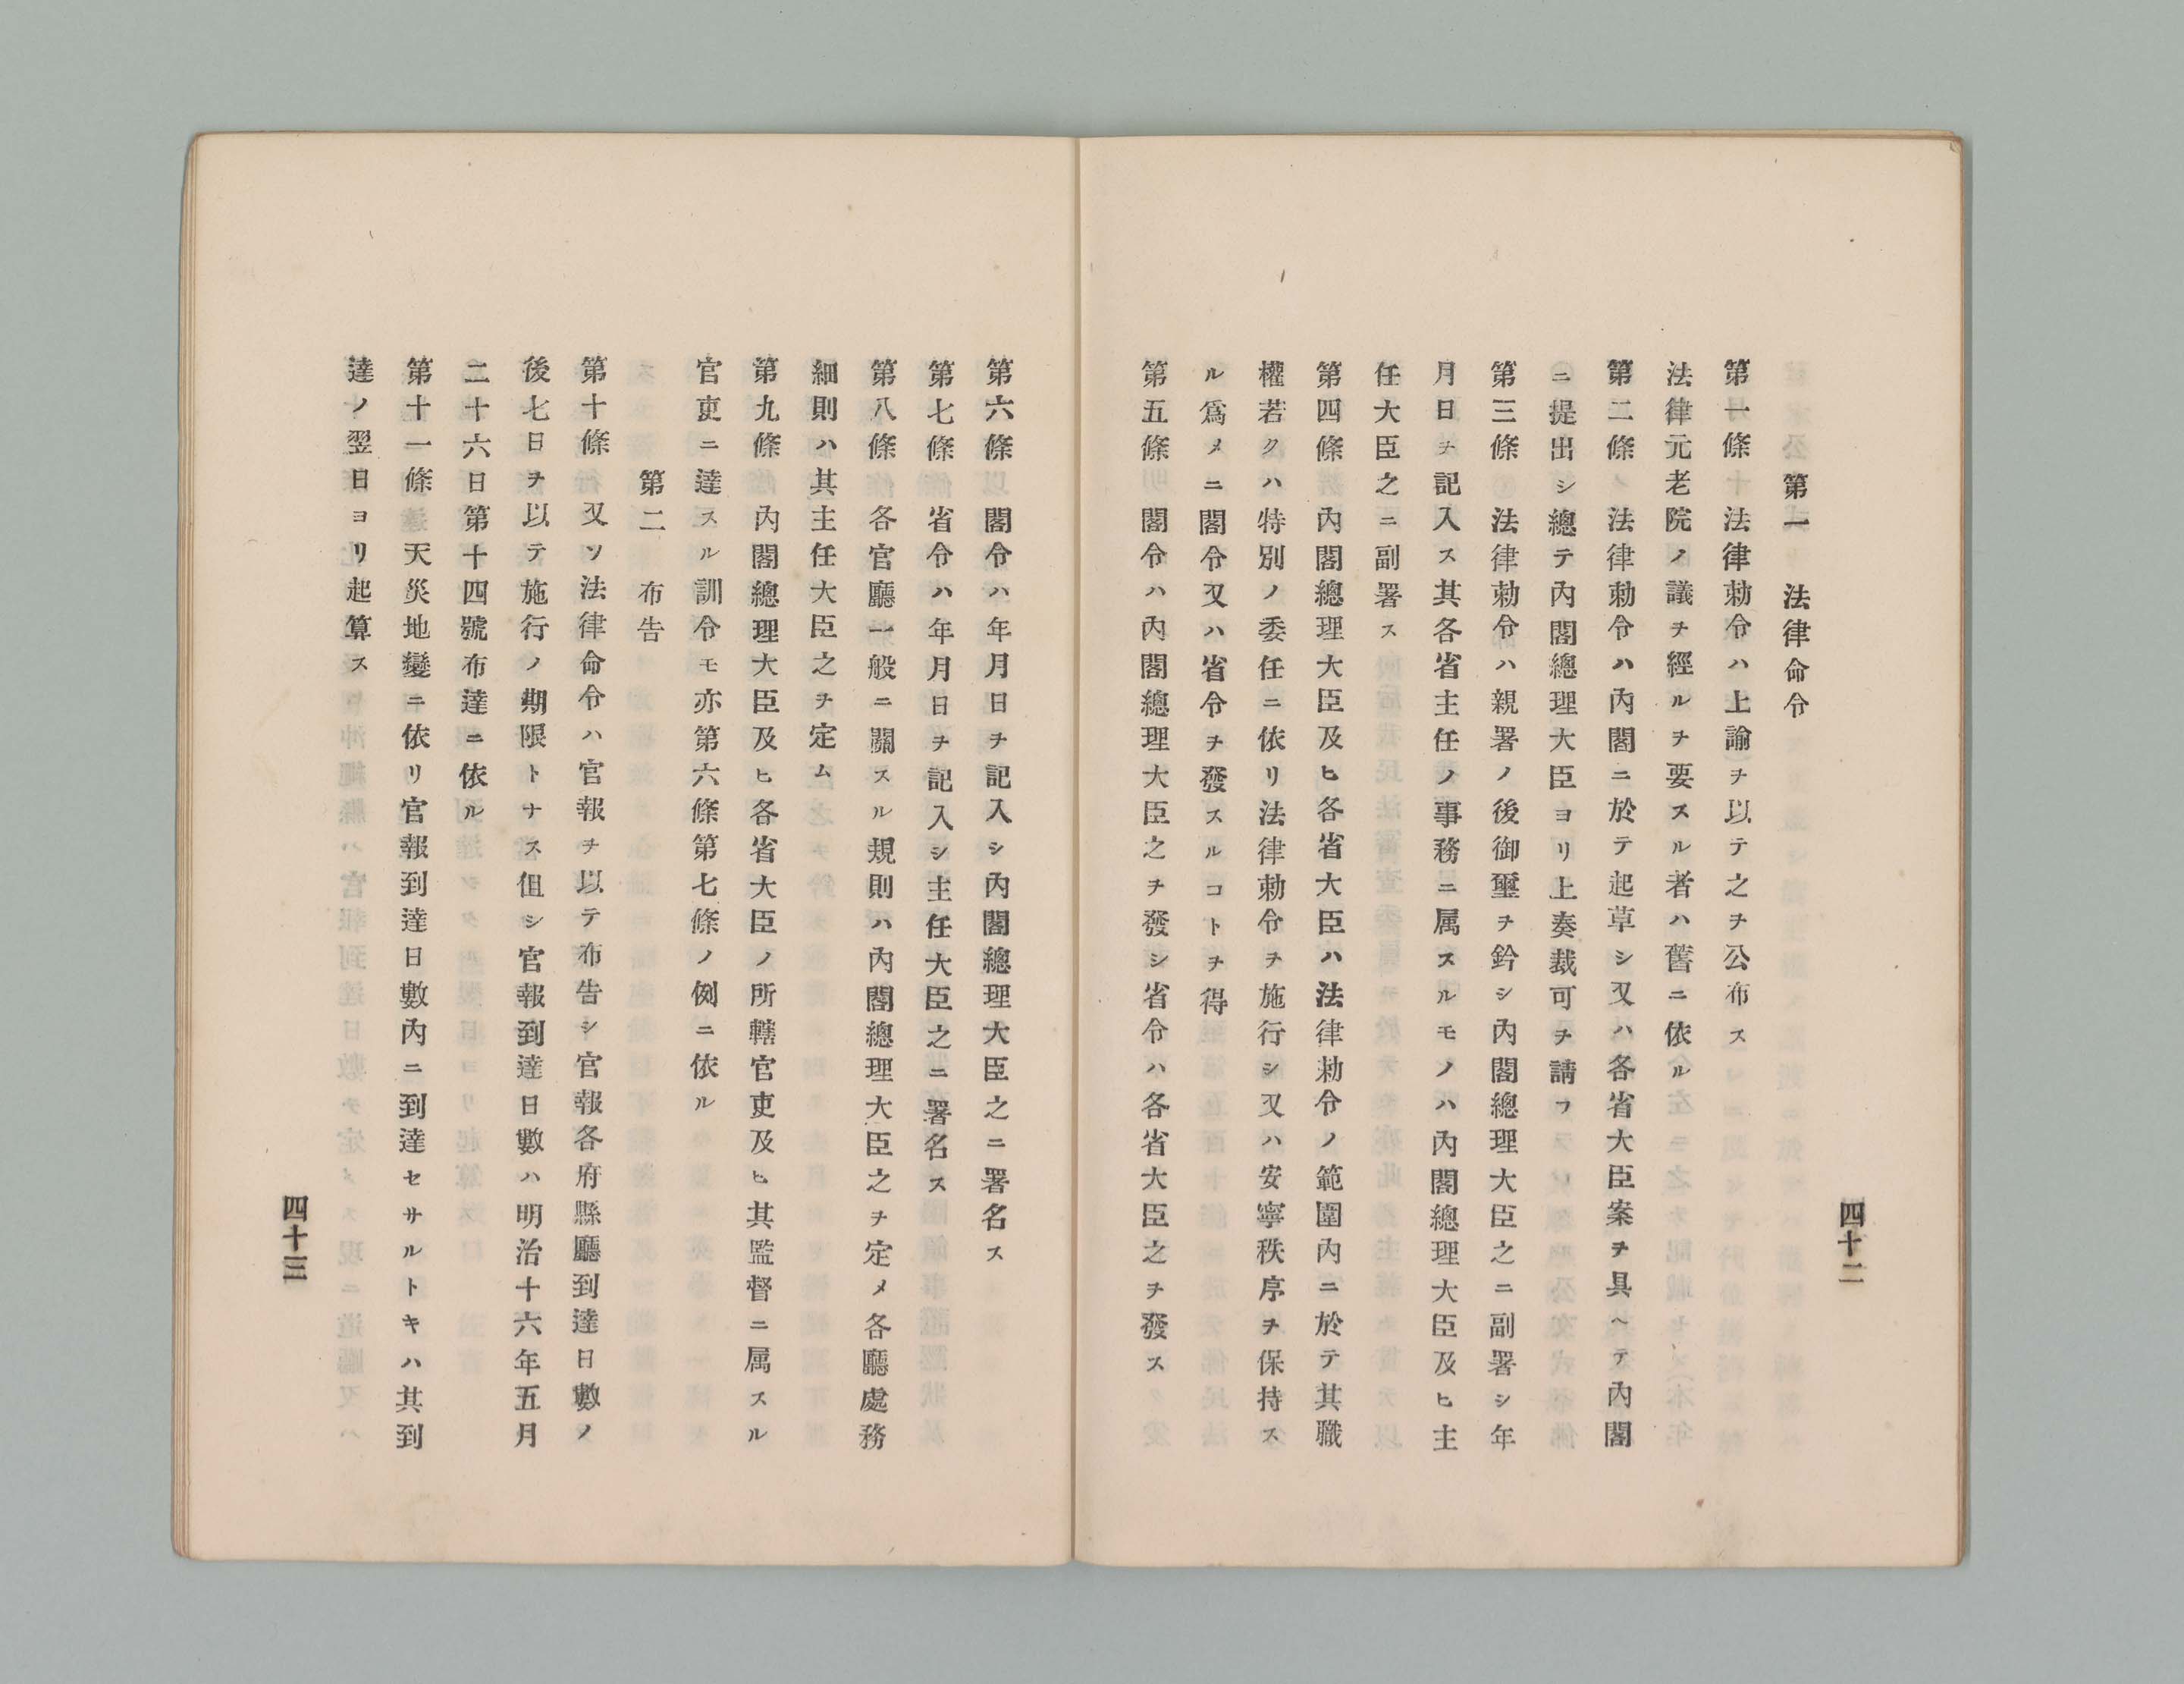 第一　法律命令
第一條　法律勅令ハ上諭ヲ以テ之ヲ公布ス
法律元老院ノ議ヲ經ルヲ要スル者ハ舊ニ依ル
第二條　法律勅令ハ內閣ニ於テ起草シ又ハ各省大臣案ヲ具ヘテ內閣
ニ提出シ總テ內閣總理大臣ヨリ上奏裁可ヲ請フ
第三條　法律勅令ハ親署ノ後御璽ヲ鈐シ內閣總理大臣之ニ副署シ年
月日ヲ記入ス其各省主任ノ事務ニ属スルモノハ內閣總理大臣及ヒ主
任大臣之ニ副署ス
第四條　內閣總理大臣及ヒ各省大臣ハ法律勅令ノ範圍內ニ於テ其職
權若クハ特別ノ委任ニ依リ法律勅令ヲ施行シ又ハ安寧秩序ヲ保持ス
ル爲メニ閣令又ハ省令ヲ發スルコトヲ得
第五條　閣令ハ內閣總理大臣之ヲ發シ省令ハ各省大臣之ヲ發ス
四十二
第六條　閣令ハ年月日ヲ記入シ內閣總理大臣之ニ署名ス
第七條　省令ハ年月日ヲ記入シ主任大臣之ニ署名ス
第八條　各官廳一般ニ關スル規則ハ內閣總理大臣之ヲ定メ各廳處務
細則ハ其主任大臣之ヲ定ム
第九條　內閣總理大臣及ヒ各省大臣ノ所轄官吏及ヒ其監督ニ属スル
官吏ニ達スル訓令モ亦第六條第七條ノ例ニ依ル
第二　布告
第十條　又ソ法律命令ハ官報ヲ以テ布告シ官報各府縣廳到達日數ノ
後七日ヲ以テ施行ノ期限トナス伹シ官報到達日數ハ明治十六年五月
二十六日第十四號布達ニ依ル
第十一條　天災地變ニ依リ官報到達日數內ニ到達セサルトキハ其到
達ノ翌日ヨリ起算ス
四十三